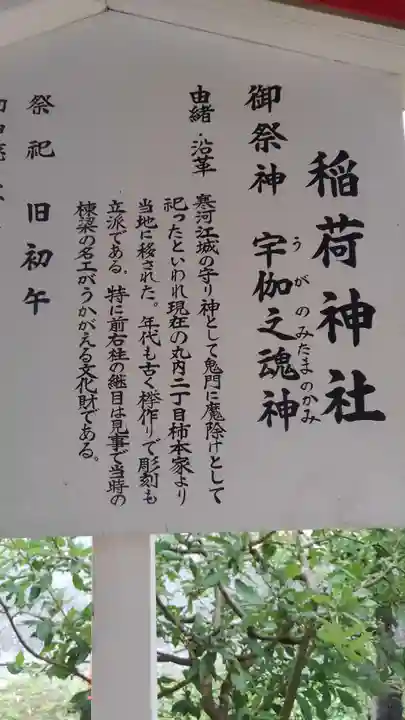 稲荷神社
御祭神 宇伽之魂神
うがのみたまのかみ
由緒・沿革
寒河江城の守り神として鬼門に魔除けとして
祀ったといわれ現在の丸内二丁目柿本家より
当地に移された。年代も古く欅作りで彫刻も
立派である。特に前右柱の継目は見事で当時の
棟梁の名工がうかがえる文化財である。
祭祀 旧初午